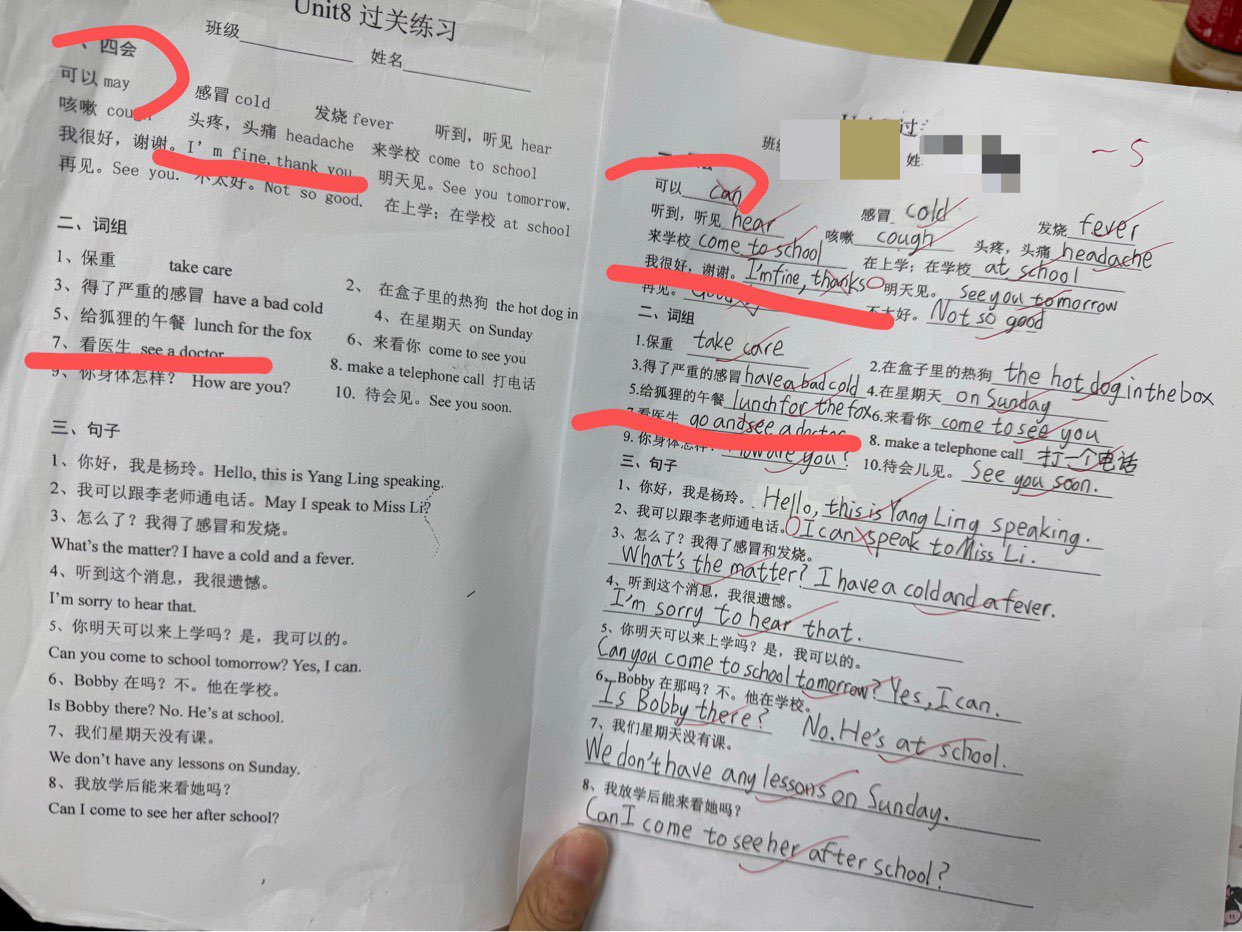 Unit8 过关练习
班级 姓名
一、四会
可以 may 感冒 cold 发烧 fever 听到，听见 hear
咳嗽 cough 头疼，头痛 headache 来学校 come to school
我很好，谢谢。I'm fine, thank you. 明天见。See you tomorrow.
再见。See you. 不太好。Not so good. 在上学；在学校 at school
二、词组
1、保重 take care
2、 在盒子里的热狗 the hot dog in
3、得了严重的感冒 have a bad cold
4、在星期天 on Sunday
5、给狐狸的午餐 lunch for the fox
6、来看你 come to see you
7、看医生 see a doctor
8. make a telephone call 打电话
9、你身体怎样？ How are you?
10. 待会见。See you soon.
三、句子
1、你好，我是杨玲。Hello, this is Yang Ling speaking.
2、我可以跟李老师通电话。May I speak to Miss Li?
3、怎么了？我得了感冒和发烧。
What's the matter? I have a cold and a fever.
4、听到这个消息，我很遗憾。
I'm sorry to hear that.
5、你明天可以来上学吗？是，我可以的。
Can you come to school tomorrow? Yes, I can.
6、Bobby 在吗？不。他在学校。
Is Bobby there? No. He's at school.
7、我们星期天没有课。
We don't have any lessons on Sunday.
8、我放学后能来看她吗？
Can I come to see her after school?
过
班 姓 -5
可以 can 感冒 cold 发烧 fever
听到，听见 hear 咳嗽 cough 头疼，头痛 headache
来学校 come to school 在上学；在学校 at school
我很好，谢谢。I'm fine, thanks 明天见。 see you tomorrow
再见。 不太好。Not so good
二、词组
1.保重 take care 2.在盒子里的热狗 the hot dog in the box
3.得了严重的感冒 have a bad cold 4.在星期天 on Sunday
5.给狐狸的午餐 lunch for the fox 6.来看你 come to see you
7.看医生 go and see a doctor 8. make a telephone call 打一个电话
9. 你身体怎样？ How are you? 10.待会儿见。 See you soon.
三、句子
1、你好，我是杨玲。 Hello, this is Yang Ling speaking.
2、我可以跟李老师通电话。 I can speak to Miss Li.
3、怎么了？我得了感冒和发烧。
What's the matter? I have a cold and a fever.
4、听到这个消息，我很遗憾。
I'm sorry to hear that.
5、你明天可以来上学吗？是，我可以的。
Can you come to school tomorrow? Yes, I can.
6、Bobby 在那吗？不。他在学校。
Is Bobby there? No. He's at school.
7、我们星期天没有课。
We don't have any lessons on Sunday.
8、我放学后能来看她吗？
Can I come to see her after school?